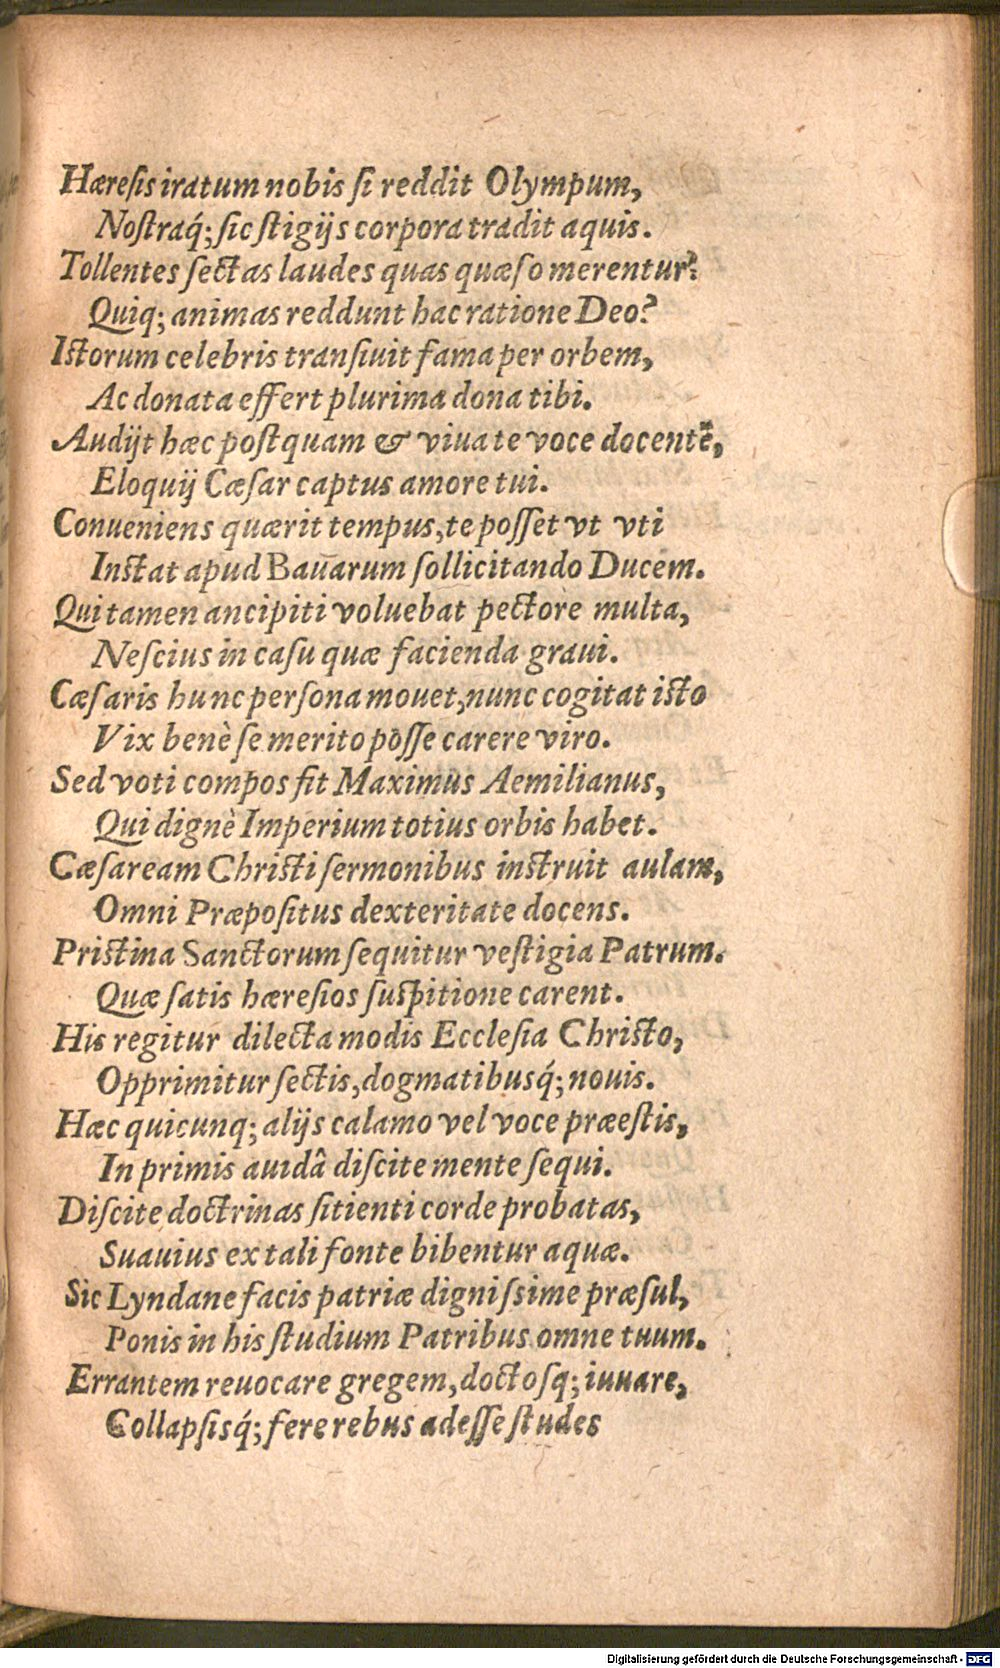 Hæreſis iratum nobis ſi reddit Olympum,
Noſtraq́; ſic ſtigijs corpora tradit aquis.
Tollentes ſectas laudes quas quæſo merentur?
Quiq; animas reddunt hac ratione Deo?
Iſtorum celebris tranſiuit fama per orbem,
Ac donata effert plurima dona tibi.
Audijt hæc poſtquam & viua te voce docentē,
Eloquij Cæſar captus amore tui.
Conueniens quærit tempus, te poſſet vt vti
Inſtat apud Bauarum ſollicitando Ducem.
Qui tamen ancipiti voluebat pectore multa,
Neſcius in caſu quæ facienda graui.
Cæſaris hunc perſona mouet, nunc cogitat iſto
Vix benè ſe merito poſſe carere viro.
Sed voti compos fit Maximus Aemilianus,
Qui dignè Imperium totius orbis habet.
Cæſaream Chriſti ſermonibus inſtruit aulam,
Omni Præpoſitus dexteritate docens.
Priſtina Sanctorum ſequitur veſtigia Patrum.
Quæ ſatis hæreſios ſuſpitione carent.
His regitur dilecta modis Eccleſia Chriſto,
Opprimitur ſectis, dogmatibusq́; nouis.
Hæc quicunq; alijs calamo vel voce præeſtis,
In primis auidâ diſcite mente ſequi.
Diſcite doctrinas ſitienti corde probatas,
Suauius ex tali fonte bibentur aquæ.
Sic Lyndane facis patriæ digniſsime præſul,
Ponis in his ſtudium Patribus omne tuum.
Errantem reuocare gregem, doctoſq; iuuare,
Collapſisq́; fere rebus adeſſe ſtudes
Digitalisierung gefördert durch die Deutsche Forschungsgemeinschaft - DFG